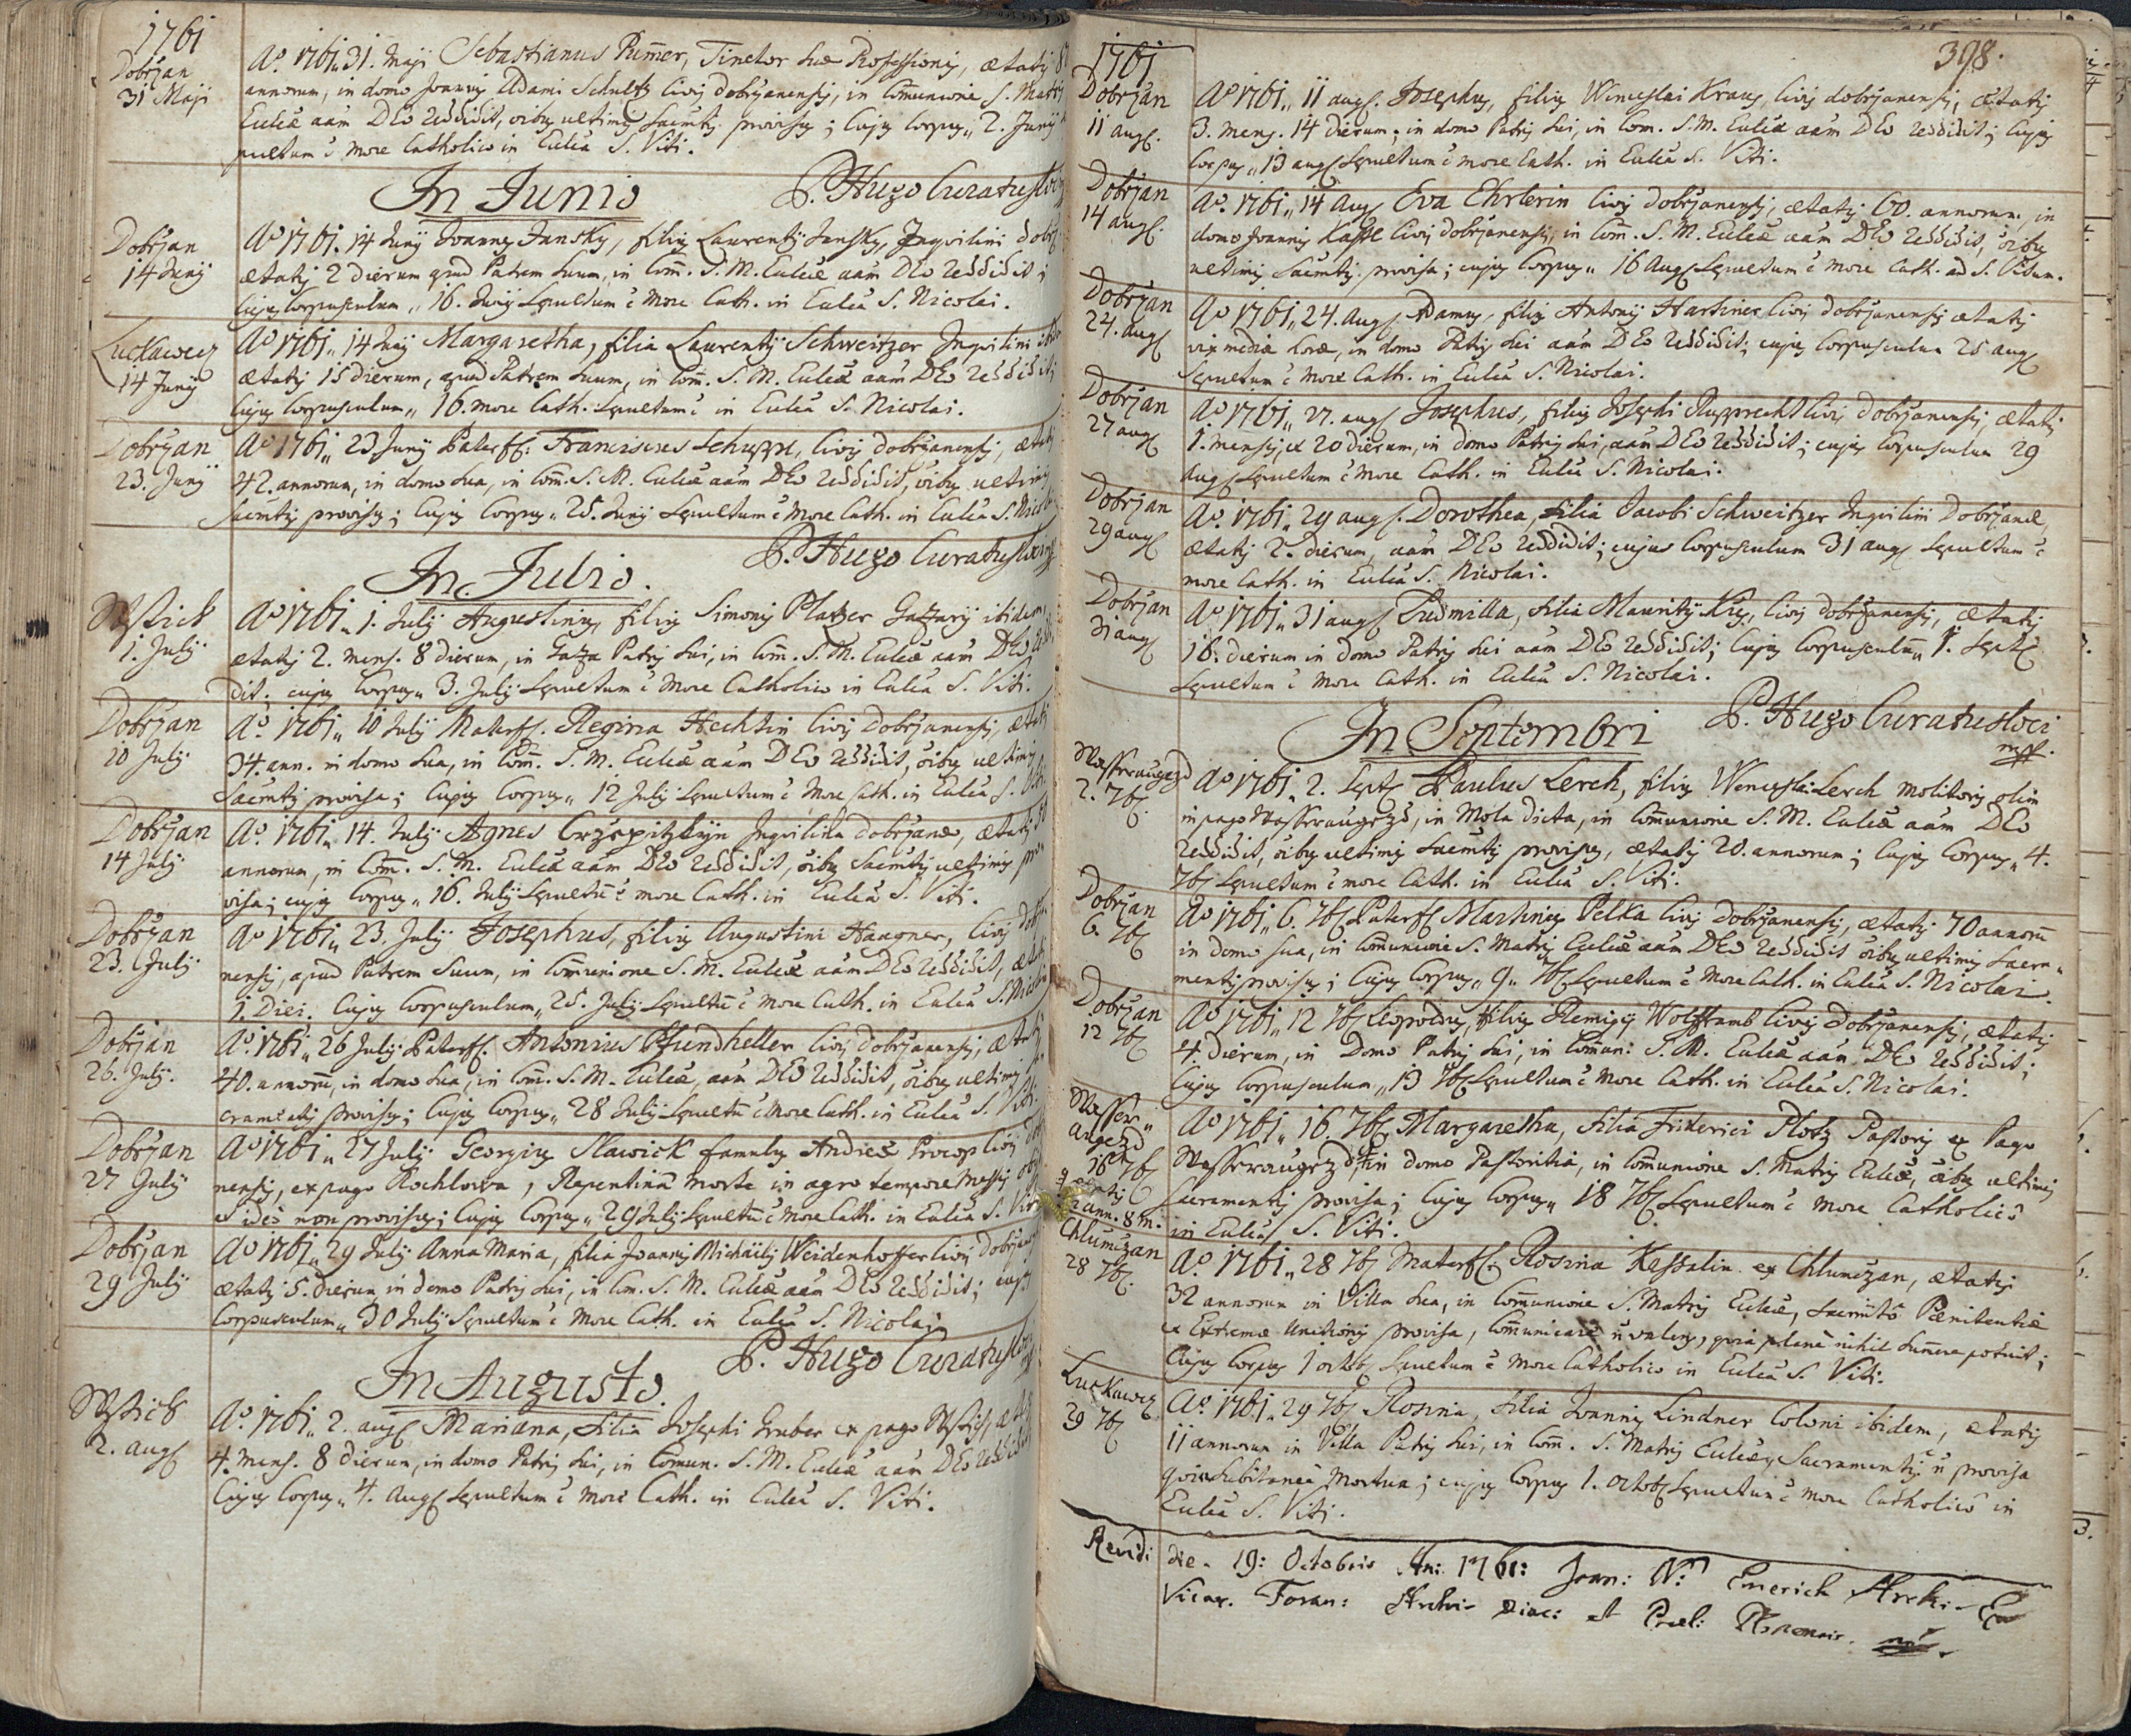 1761
Dobrzan
31 Maji
Aº. 1761. 31. Maji Sebastianus Pum̄er, Tinctor suæ Professionis, ætatis
annorum, in domo Joannis Adami Schultz Civis dobrzanensis, in Com̄unione S. Matris
Eccliæ aām DEo reddidit, oībus ultimis Sacm̄tis provisus; Cujus Corpus „ 2. Junij
pultum ē more Catholico in Ecclia S. Viti.
P. Hugo Curatus loci
In Junio
Dobrzan
14 Junij
Aº 1761. 14 Junij Joannes Jansky, filius Laurentij Jansky, Inquilini
ætatis 2 dierum apud Patrem suum, in Com̄. S. M. Eccliæ aām DEo reddidit;
Cujus Corpusculum „ 16. Junij Sepultum ē More Cath. in Ecclia S. Nicolai.
Luckawecz
14 Junij
Aº 1761 „ 14 Junij Margaretha, filia Laurentij Schweitzer Inquilini
ætatis 15 dierum, apud Patrem suum, in Com̄. S. M. Eccliæ aām DEo reddidit;
Cujus Corpusculum „ 16. more Cath. Sepultum ē in Ecclia S. Nicolai.
Dobrzan
23. Junij
Aº 1761 „ 23 Junij Paterf: Franciscus Schuppl, Civis dobrzanensis, ætatis
42. annorum, in domo sua, in Com̄. S. M. Eccliæ aām DEo reddidit, oībus ultimis
Sacm̄tis provisus; Cujus Corpus „ 25. Junij Sepultum ē More Cath. in Ecclia S.
P. Hugo Curatus loci
In Julio.
1. Julij
Aº 1761 „ 1. Julij Augustinus, filius Simonis Platzer Gazarij ibidem,
ætatis 2. mens. 8 dierum, in Gaza Patris sui, in Com̄. S. M. Eccliæ aām DEo
dit; cujus Corpus „ 3. Julij Sepultum ē More Catholico in Ecclia S. Viti.
Dobrzan
10 Julij
Aº. 1761 „ 10 Julij Materf. Regina Hechtin Civis Dobrzanensis,
34. ann. in domo sua, in Com̄. S. M. Eccliæ aām DEo reddidit, oībus ultimis
Sacm̄tis provisa; Cujus Corpus „ 12 Julij Sepultum ē More Cath. in Ecclia S.
Dobrzan
14 Julij
Aº. 1761 „ 14. Julij Agnes Inquilina dobrzanæ, ætatis
annorum, in Com̄. S. M. Eccliæ aām DEo reddidit, oībus Sacm̄tis ultimis
visa; cujus Corpus „ 16. Julij Sepultū ē more Cath. in Ecclia S. Viti.
Dobrzan
23. Julij
Aº 1761 „ 23. Julij Josephus, filius Augustini Haugner, Civis
nensis, apud Patrem Suum, in Com̄unione S. M. Eccliæ aām DEo reddidit,
1. Diei. Cujus Corpusculum „ 25. Julij Sepultū ē More Cath. in Ecclia S.
Dobrzan
26. Julij.
Aº. 1761 „ 26 Julij Paterf. Antonius Pfundheller Civis dobrzanensis,
40. annorū, in domo sua, in Com̄. S. M. Eccliæ, aām DEo reddidit, oībus ultimis
cramētis provisus; Cujus Corpus „ 28 Julij Sepultū ē More Cath. in Ecclia S.
Dobrzan
27 Julij
Aº 1761 „ 27 Julij Georgius Slawick famulus Andreæ Procop Civis
nensis, ex pago Rochlowa, Repentina morte in agro tempore messis
et ideo non provisus; Cujus Corpus „ 29 Julij Sepultū ē More Cath. in Ecclia S.
Dobrzan
29 Julij
Aº 1761 „ 29 Julij Anna Maria, filia Joannis Michäelis Weidenhoffer Civis
ætatis 5. dierum in domo Patris sui, in Com. S. M. Eccliæ aām DEo reddidit; cujus
Corpusculum „ 30 Julij Sepultum ē More Cath. in Ecclia S. Nicolai
P. Hugo Curatus
In Augusto.
2. aug
Aº. 1761 „ 2. aug Mariana, filia Josephi Gruber ex pago
4. mens. 8 dierum, in domo Patris sui, in Comun. S. M. Eccliæ aām DEo
Cujus Corpus „ 4. aug Sepultum ē More Cath. in Ecclia S. Viti.
398.
1761
Dobrzan
11 aug.
Aº 1761 „ 11 aug. Josephus, filius Winceslai Kraus, Civis dobrzanensis, ætatis
3. mens. 14 dierum, in domo Patris sui, in Com. S. M. Eccliæ aām DEo reddidit; Cujus
Corpus „ 13 aug Sepultum ē more Cath. in Ecclia S. Viti.
Dobrzan
14 aug.
Aº. 1761 „ 14 Aug Eva Ehrlerin Civis Dobrzanensis, ætatis 60. annorum, in
domo Joannis Civis dobrzanensis, in Com̄. S. M. Eccliæ aām DEo reddidit, oībus
ultimis Sacm̄tis provisa; cujus Corpus „ 16 Aug Sepultum ē more Cath. ad S. Vitum.
Dobrzan
24. aug
Aº 1761 „ 24. aug Adamus, filius Antonij Hartiner, Civis dobrzanensis ætatis
vix mediæ horæ, in domo Patris sui aām DEo reddidit; cujus Corpusculum 25 aug
Sepultum ē more Cath. in Ecclia S. Nicolai.
Dobrzan
27 aug
Aº 1761 „ 27. aug Josephus, filius Josephi Rupprecht Civis Dobrzanensis, ætatis
1. mensis, et 20 dierum, in domo Patris sui, aām DEo reddidit; cujus Corpusculum 29
aug Sepultum ē more Cath. in Ecclia S. Nicolai.
Dobrzan
29 aug
Aº. 1761 „ 29 aug. Dorothea, filia Jacobi Schweitzer Inquilini Dobrzanæ,
ætatis 2. dierum, aām DEo reddidit; cujus Corpusculum 31 aug Sepultum ē
more Cath. in Ecclia S. Nicolai.
Dobrzan
31 aug
Aº. 1761 „ 31 aug Ludmilla, filia Mauritij Civis dobrzanensis, ætatis
16. dierum in domo Patris sui aām DEo reddidit; Cujus Corpusculū „ 1. Sept
Sepultum ē more Cath. in Ecclia S. Nicolai.
P. Hugo Curatus loci
mpp.
In Septembri
Wasseraugezd
2. 7b.
Aº 1761 „ 2. Sept Paulus Lerch, filius Winceslai Lerch molitoris olim
in pago Wasseraugezd, in Mola dicta, in Com̄unione S. M. Eccliæ aām DEo
reddidit, oībus ultimis Sacm̄tis provisus, ætatis 20. annorum; Cujus Corpus „ 4.
7b Sepultum ē more Cath. in Ecclia S. Viti.
Dobrzan
6. 7b
Aº 1761 „ 6. 7b Paterf Martinus Pelka Civis Dobrzanensis, ætatis 70 annorū
in domo sua, in Com̄unione S. Matris Eccliæ aām DEo reddidit oībus ultimis Sacra„
mentis provisus; Cujus Corpus „ 9 „ 7b Sepultum ē More Cath. in Ecclia S. Nicolai.
Dobrzan
12 7b
Aº 1761 „ 12 7b Leopoldus, filius Remigij Wolfframb Civis Dobrzanensis, ætatis
4. dierum, in Domo Patris sui, in Com̄un: S. M. Eccliæ aām DEo reddidit;
Cujus Corpusculum „ 13 7b Sepultum ē More Cath. in Ecclia S. Nicolai.
Wasser„
augezd
16 7b
ætatis
2 ann. 8 m.
Aº 1761 „ 16. 7b Margaretha, filia Friderici Plotz Pastoris ex Pago
Wasseraugezd, in domo Pastoritia, in Com̄unione S. Matris Eccliæ, oībus ultimis
Sacramentis provisa; Cujus Corpus „ 18 7b Sepultum ē More Catholico
in Ecclia S. Viti.
Chlumczan
28 7b.
Aº. 1761 „ 28 7b Materf. Rosina Kassalin ex Chlumczan, ætatis
32 annorum in Villa sua, in Com̄unione S. Matris Eccliæ, Sacrm̄tō Pœnitentiæ
et Extremæ Unctionis provisa, Com̄unicare ñ valens, quia plane nihil sumere potuit;
Cujus Corpus 1 octob Sepultum ē more Catholico in Ecclia S. Viti.
Luckawez
29 7b
Aº. 1761 „ 29 7b Rosina, filia Joannis Lindner Coloni ibidem, ætatis
11 annorum in Villa Patris sui, in Com̄. S. Matris Eccliæ, Sacramentis ñ provisa
quia subitanea mortua; cujus Corpus 1. octob Sepultum ē more Catholico in
Ecclia S. Viti.
Revidi die. 19: Octobris An: 1761: Joan: N: Emerich
Vicar. Foran: